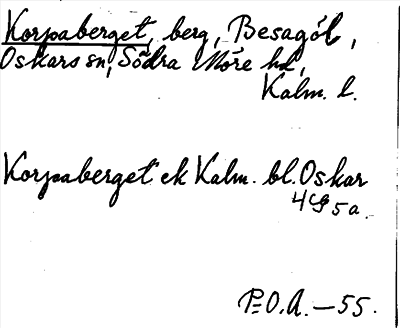 Korpaberget, berg, Besagöl,
Oskars sn, Södra Möre hd,
Kalm. l.
Korpaberget ek Kalm. bl. Oskar
4G 5a.
P.O.A. — 55.